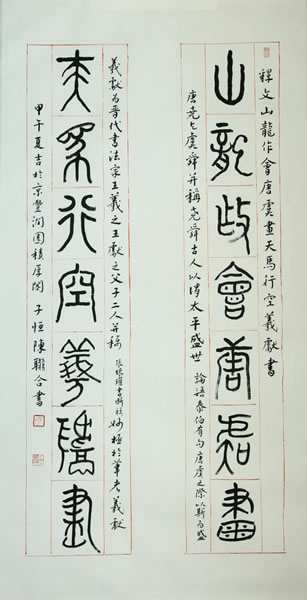 釋文山龍作會唐虞畫天馬行空羲獻書
山龍作會唐虞畫
唐堯與虞舜并稱堯舜古人以謂太平盛世
論語泰伯有句唐虞之際以斯為盛
天馬行空羲獻書
羲獻為晉代書法家王羲之王獻之父子二人并稱
張懷瓘書斷 妙極於筆夫羲獻
甲午夏吉於京豐潤園積厚閣 子恒陳聯合書